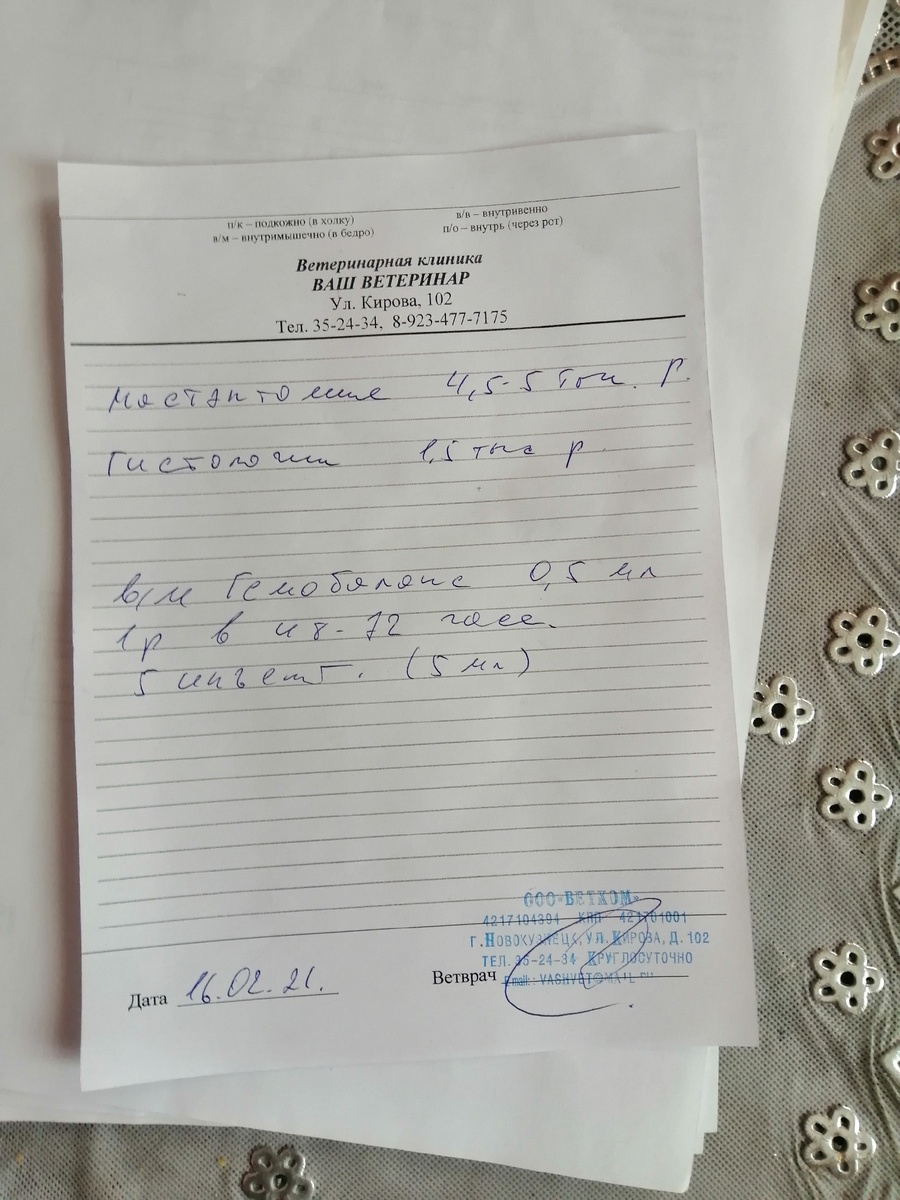 п/к – подкожно (в холку)
в/в – внутривенно
в/м – внутримышечно (в бедро)
п/о – внутрь (через рот)
Ветеринарная клиника
ВАШ ВЕТЕРИНАР
Ул. Кирова, 102
Тел. 35-24-34, 8-923-477-7175
Мастэктомия 4,5-5 тыс. р.
Гистология 1,5 тыс р
в/м Гемобаланс 0,5 мл
1р в 48-72 часа.
5 инъект. (5 мл)
ООО «ВЕТКОМ»
4217104394 КПП 421701001
Г. НОВОКУЗНЕЦК, УЛ. КИРОВА, Д. 102
ТЕЛ. 35-24-34 КРУГЛОСУТОЧНО
Email: VASHVET@MAIL.RU
Ветврач
Дата 16.02.21.